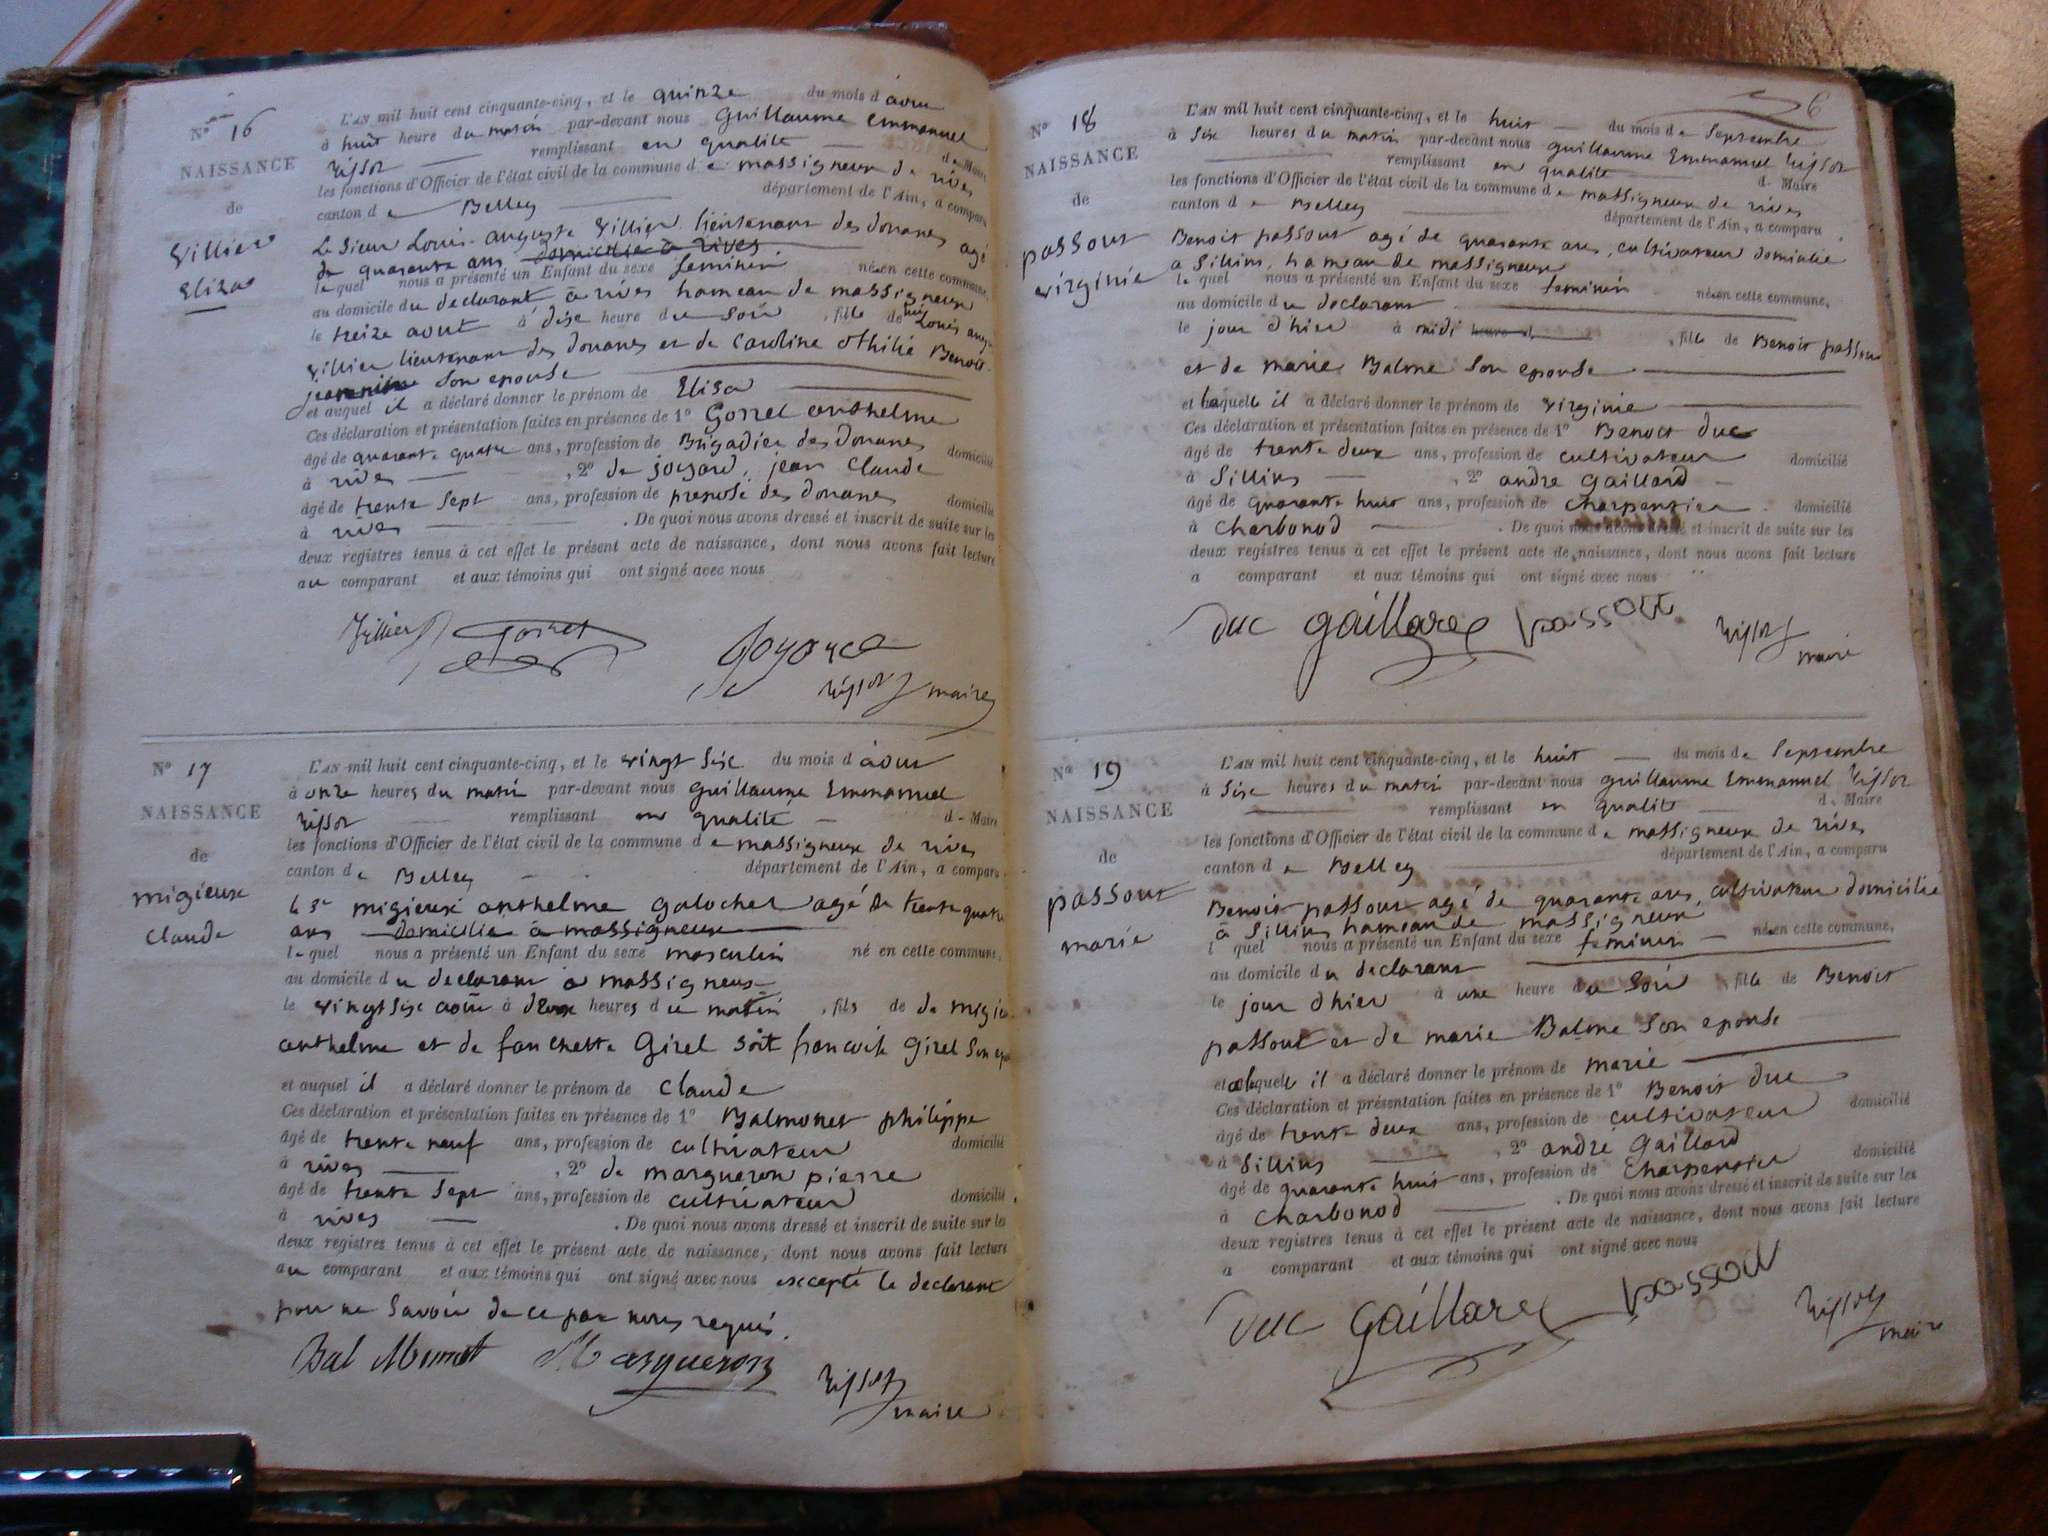 N° 16
NAISSANCE
de
Villier
Eliza
L'AN mil huit cent cinquante-cinq, et le quinze du mois d'aout
à huit heure du matin par-devant nous Guillaume Emmanuel
remplissant en qualité de Maire
les fonctions d'Officier de l'état civil de la commune de massigneux de rives
canton de Belley département de l'Ain, a comparu
Le Sieur Louis-auguste Villier lieutenant des douanes agé
de quarante ans domicilie a rives
lequel nous a présenté un Enfant du sexe feminin né en cette commune,
au domicile du declarant à rives hameau de massigneux
le treize aout à dixe heure du Soir, fille de Louis
villier lieutenant des douanes et de Caroline othilie Benoit
Son epouse
et auquel il a déclaré donner le prénom de Eliza
Ces déclaration et présentation faites en présence de 1° Gorret anthelme
âgé de quarante quatre ans, profession de Brigadier des Douanes domicilié
à rives, 2° de joyard, jean Claude
âgé de trente Sept ans, profession de preposé des douanes domicilié
à rives. De quoi nous avons dressé et inscrit de suite sur les
deux registres tenus à cet effet le présent acte de naissance, dont nous avons fait lecture
au comparant et aux témoins qui ont signé avec nous
Villier Gorret
maire
N° 17
NAISSANCE
de
migieux
Claude
L'AN mil huit cent cinquante-cinq, et le vingt Six du mois d'aout
à onze heures du matin par-devant nous Guillaume Emmanuel
remplissant en qualité de Maire
les fonctions d'Officier de l'état civil de la commune de massigneux de rives
canton de Belley département de l'Ain, a comparu
le Sr migieux anthelme galocher agé de trente quatre
ans domicilie à massigneux
lequel nous a présenté un Enfant du sexe masculin né en cette commune,
au domicile du declarant a massigneux
le vingt Six aout à deux heures du matin, fils de de
anthelme et de fanchette Girel Soit francoise Girel Son
et auquel il a déclaré donner le prénom de Claude
Ces déclaration et présentation faites en présence de 1° Balmonet philippe
âgé de trente neuf ans, profession de cultivateur domicilié
à rives, 2° de margueron pierre
âgé de trente Sept ans, profession de cultivateur domicilié
à rives. De quoi nous avons dressé et inscrit de suite sur les
deux registres tenus à cet effet le présent acte de naissance, dont nous avons fait lecture
au comparant et aux témoins qui ont signé avec nous excepté le declarant
pour ne Savoir de ce par nous requis.
Margueron
maire
6
N° 18
NAISSANCE
de
passout
virginie
L'AN mil huit cent cinquante-cinq, et le huit du mois de Septembre
à Six heures du matin par-devant nous guillaume Emmanuel
remplissant en qualité de Maire
les fonctions d'Officier de l'état civil de la commune de massigneux de rives
canton de Belley département de l'Ain, a comparu
Benoit passout agé de quarante ans, cultivateur domicilié
a Sillins, hameau de massigneux
lequel nous a présenté un Enfant du sexe feminin né en cette commune,
au domicile du declarant
le jour d'hier à midi heure d, fille de Benoit passout
et de marie Balme Son epouse
et laquelle il a déclaré donner le prénom de virginie
Ces déclaration et présentation faites en présence de 1° Benoit duc
âgé de trente deux ans, profession de cultivateur domicilié
à Sillins, 2° andre Gaillard
âgé de quarante huit ans, profession de charpentier domicilié
à Charbonod. De quoi nous avons dressé et inscrit de suite sur les
deux registres tenus à cet effet le présent acte de naissance, dont nous avons fait lecture
a comparant et aux témoins qui ont signé avec nous
Duc gaillard passout
maire
N° 19
NAISSANCE
de
passout
marie
L'AN mil huit cent cinquante-cinq, et le huit du mois de Septembre
à Six heures du matin par-devant nous guillaume Emmanuel
remplissant en qualité de Maire
les fonctions d'Officier de l'état civil de la commune de massigneux de rives
canton de Belley département de l'Ain, a comparu
Benoit passout agé de quarante ans, cultivateur domicilié
à Sillins hameau de massigneux
l quel nous a présenté un Enfant du sexe feminin né en cette commune,
au domicile du declarant
le jour d'hier à une heure du Soir fille de Benoit
passout et de marie Balme Son epouse
et laquelle il a déclaré donner le prénom de marie
Ces déclaration et présentation faites en présence de 1° Benoit duc
âgé de trente deux ans, profession de cultivateur domicilié
à Sillins, 2° andre Gaillard
âgé de quarante huit ans, profession de Charpentier domicilié
à Charbonod. De quoi nous avons dressé et inscrit de suite sur les
deux registres tenus à cet effet le présent acte de naissance, dont nous avons fait lecture
a comparant et aux témoins qui ont signé avec nous
Duc Gaillard passout
maire